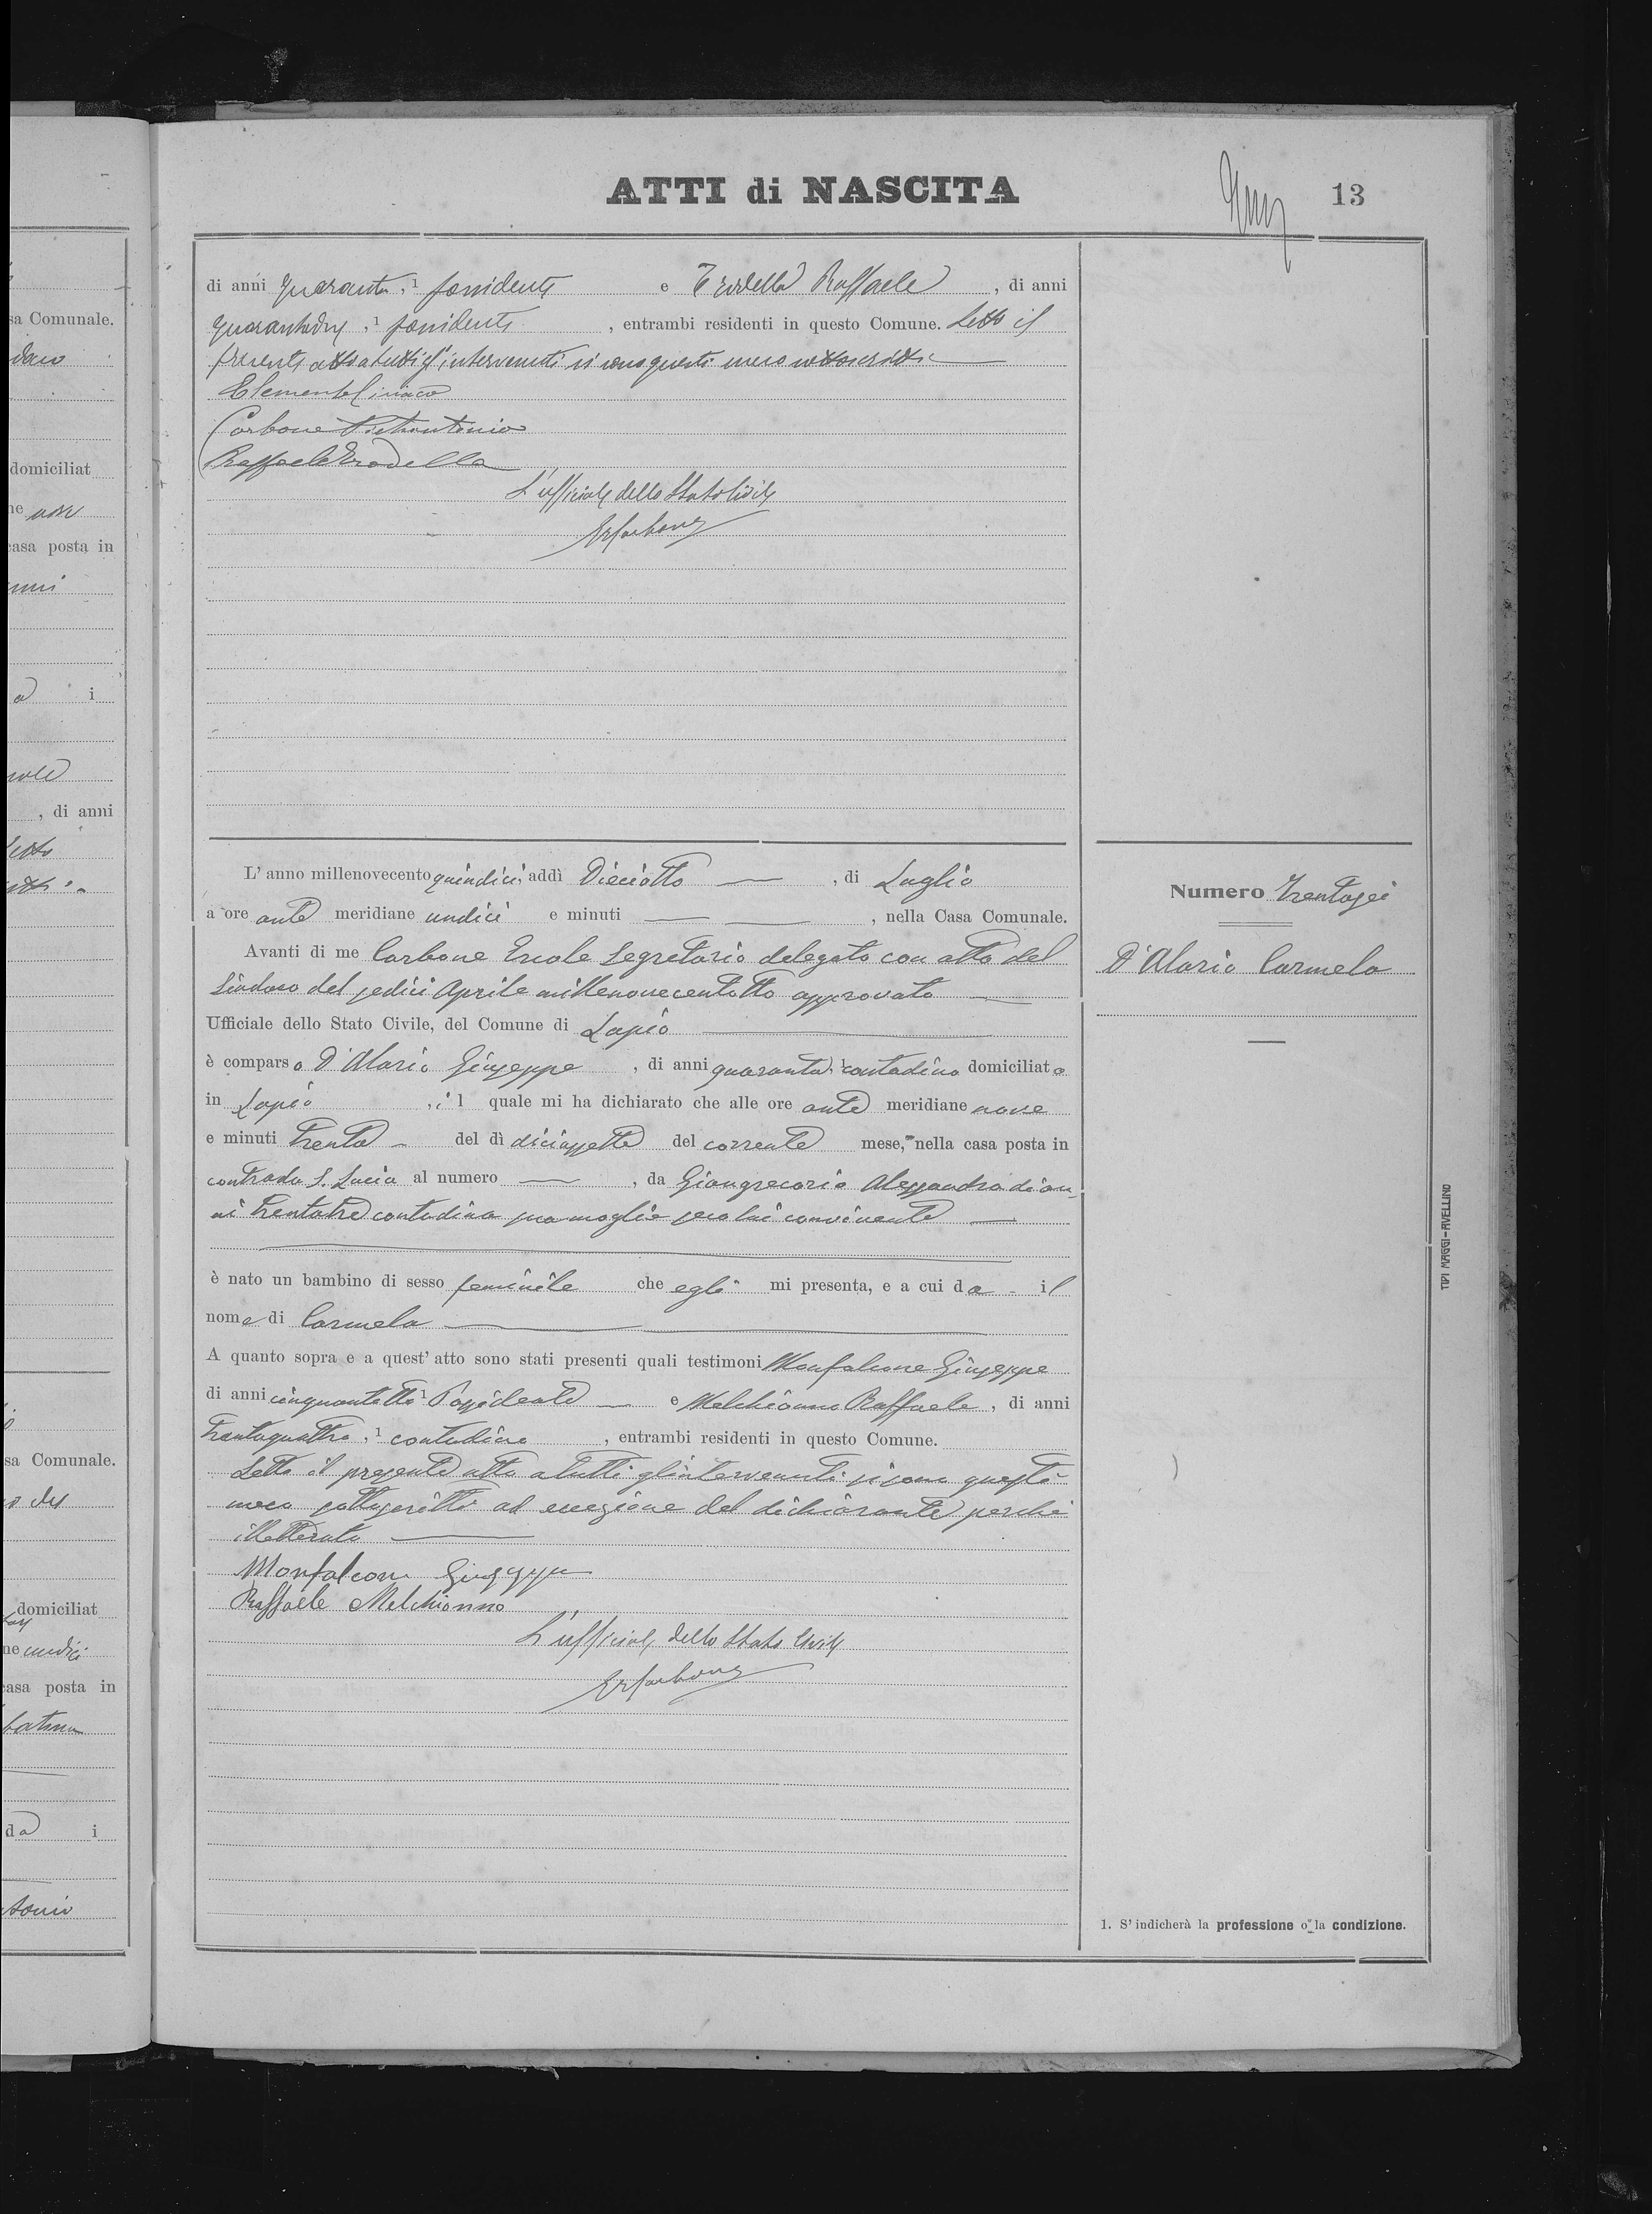 ATTI di NASCITA
13
di anni quaranta, 1 possidente e Trodella Raffaele, di anni
quarantadue, 1 possidente, entrambi residenti in questo Comune. Letto il
presente atto a tutti gl'intervenuti si sono questi meco sottoscritti
Clemente Ciriaco
Carbone
Raffaele Trodella
L'ufficiale dello Stato Civile
L'anno millenovecentoquindici, addì Dieciotto, di Luglio
a ore ante meridiane undici e minuti, nella Casa Comunale.
Avanti di me Carbone Ercole Segretario delegato con atto del
Sindaco del sedici Aprile millenovecentotto approvato
Ufficiale dello Stato Civile, del Comune di Lapio
è comparso D'Alario Giuseppe, di anni quaranta, 1 contadino domiciliato
in Lapio, il quale mi ha dichiarato che alle ore ante meridiane nove
e minuti trenta del dì diciassette del corrente mese, nella casa posta in
contrada S. Lucia al numero, da Giangregorio Alessandra di an
ni trentatre contadina sua moglie seco lui convivente
è nato un bambino di sesso feminile che egli mi presenta, e a cui da il
nome di Carmela
A quanto sopra e a quest'atto sono stati presenti quali testimoni Monfalcone Giuseppe
di anni cinquantotto 1 Possidente e Melchionno Raffaele, di anni
trentaquattro, 1 contadino, entrambi residenti in questo Comune.
Letto il presente atto a tutti gl'intervenuti si sono questi
meco sottoscritti ad eccezione del dichiarante perchè
illetterato
Monfalcone Giuseppe
Raffaele Melchionno
L'ufficiale dello Stato Civile
Numero Trentasei
D'Alario Carmela
1. S'indicherà la professione o la condizione.
TIPI MAGGI-AVELLINO
sa Comunale.
domiciliat
casa posta in
i
, di anni
sa Comunale.
domiciliat
ne undici
casa posta in
da i